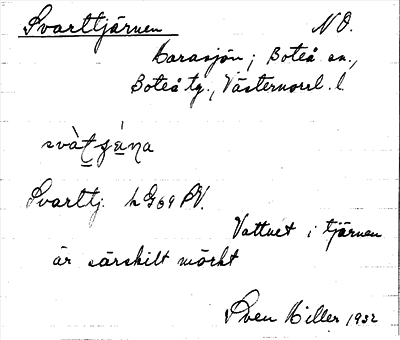 Svarttjärnen NO.
Karasjön; Boteå sn.,
Boteå tg., Västernorrl. l.
svàt̠ʂä́ṇa
Svarttj. h G69 PV.
Vattnet i tjärnen
är särskilt mörkt
Sven Hiller 1932